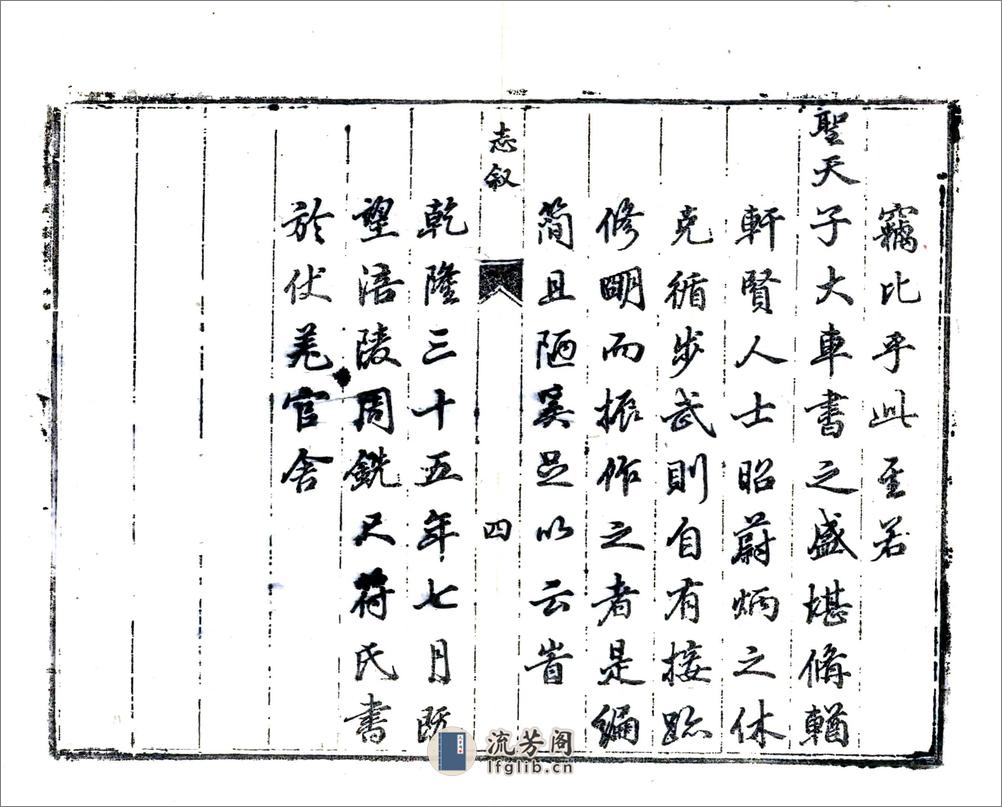 竊比乎此至若
聖天子大車書之盛堪脩輶
軒賢人士昭蔚炳之休
克循步武則自有接跡
修明而振作之者是編
簡且陋奚足以云旹
志叙
四
乾隆三十五年七月既
望涪陵周銑尺符氏書
於伏羌官舍
流芳阁
lfglib.cn